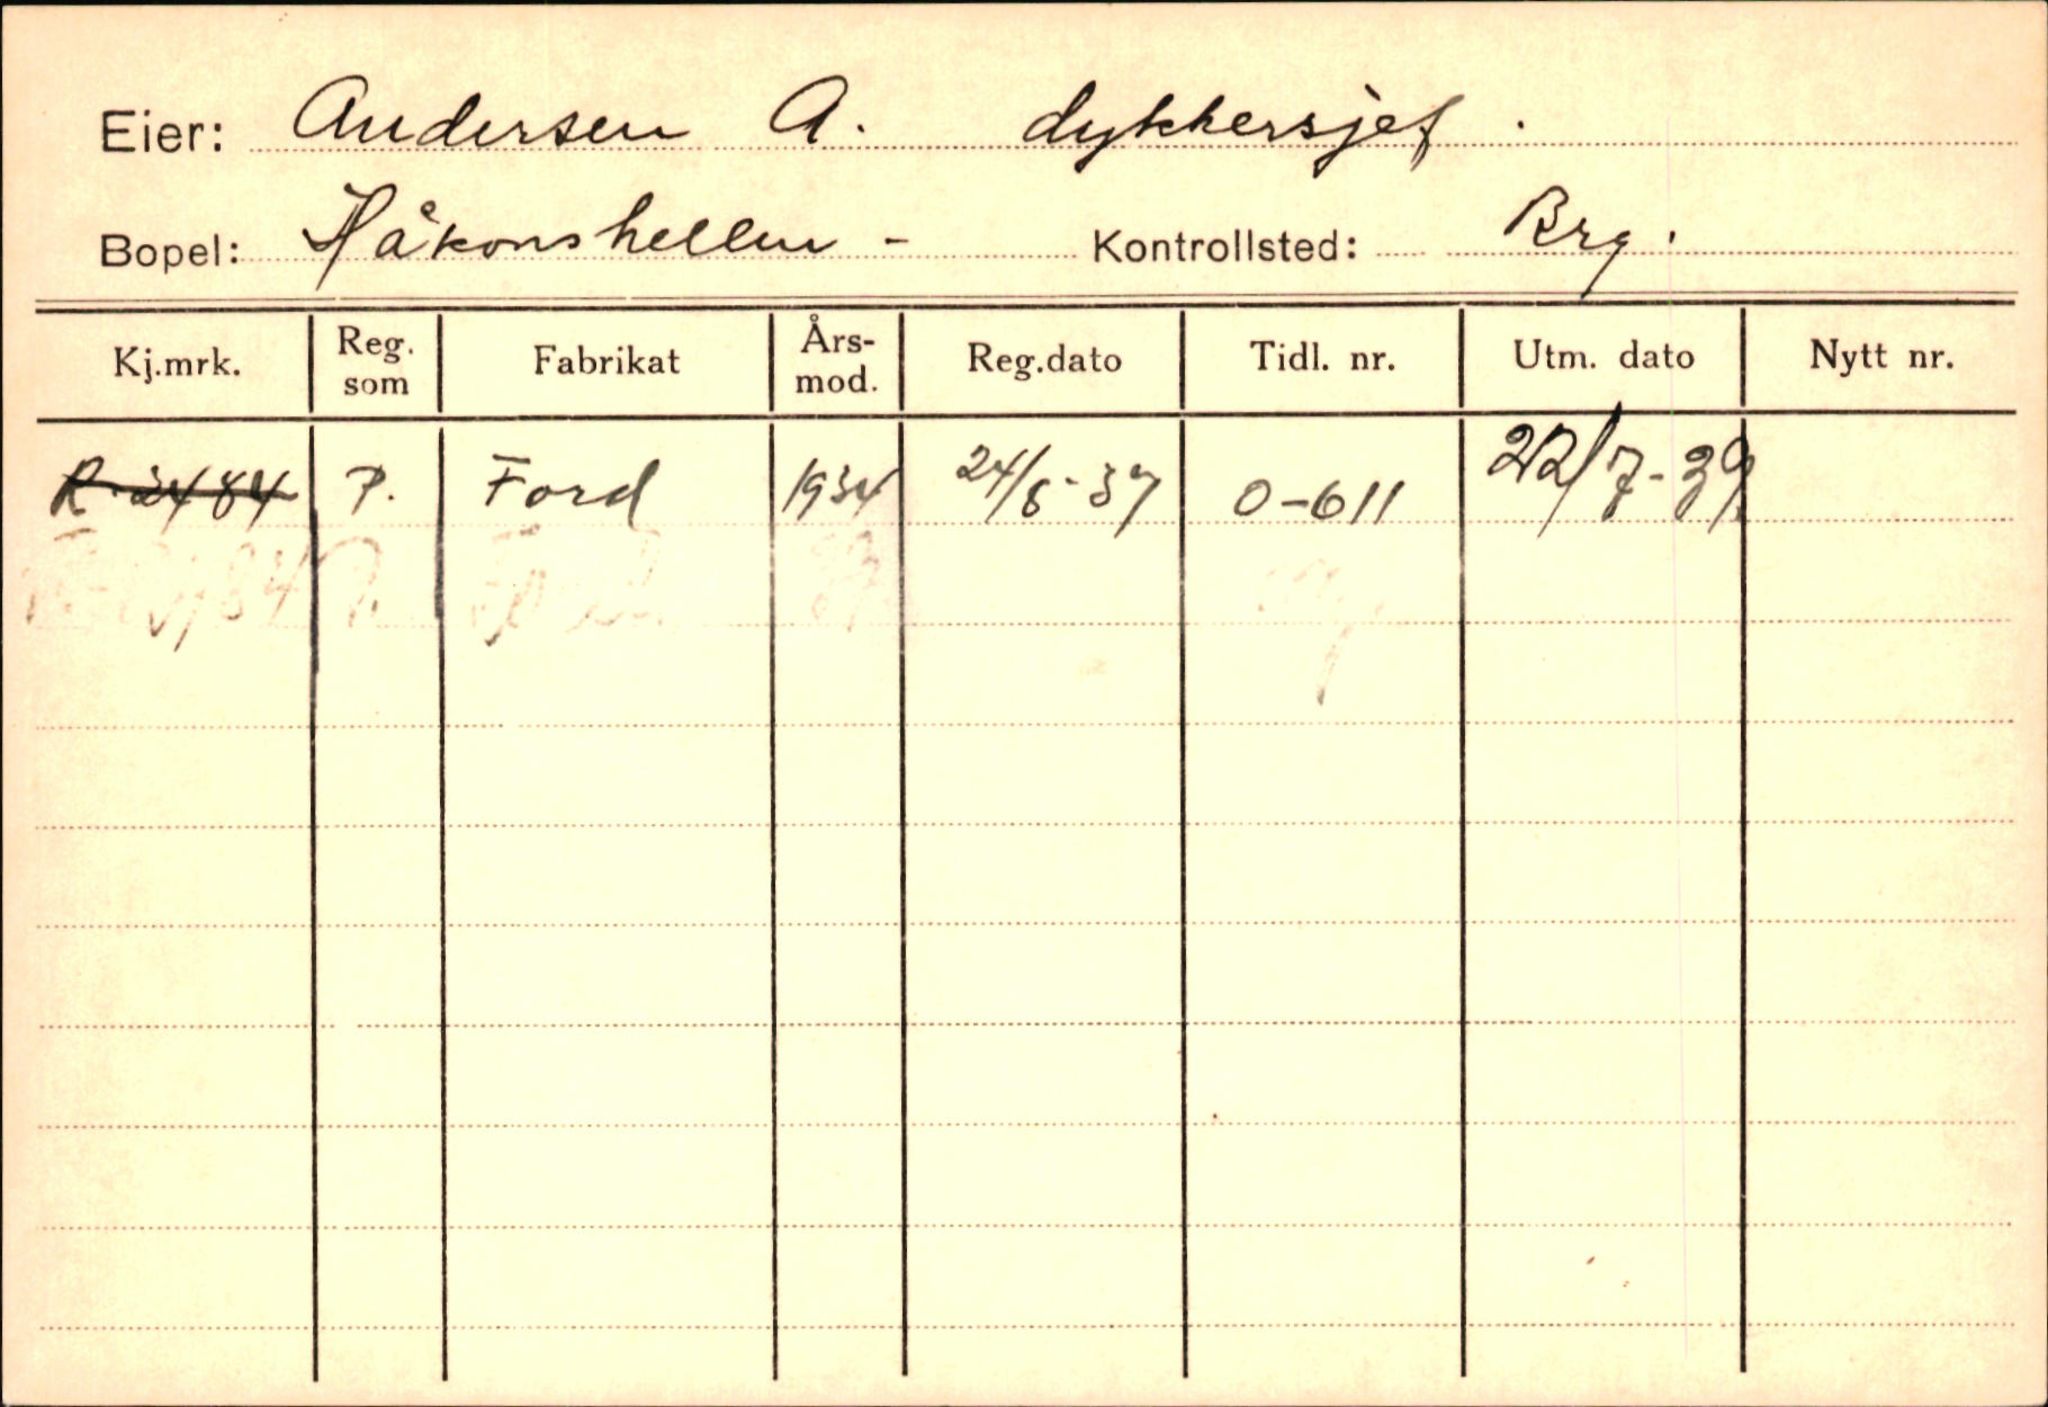 Eier: Andersen A. dykkersjef.
Bopel: Håkonshellen - Kontrollsted: Brg.
Kj.mrk. Reg. som Fabrikat Års-mod. Reg.dato Tidl. nr. Utm. dato Nytt nr.
R-2484 P. Ford 1934 24/8-37 O-611 22/7-39